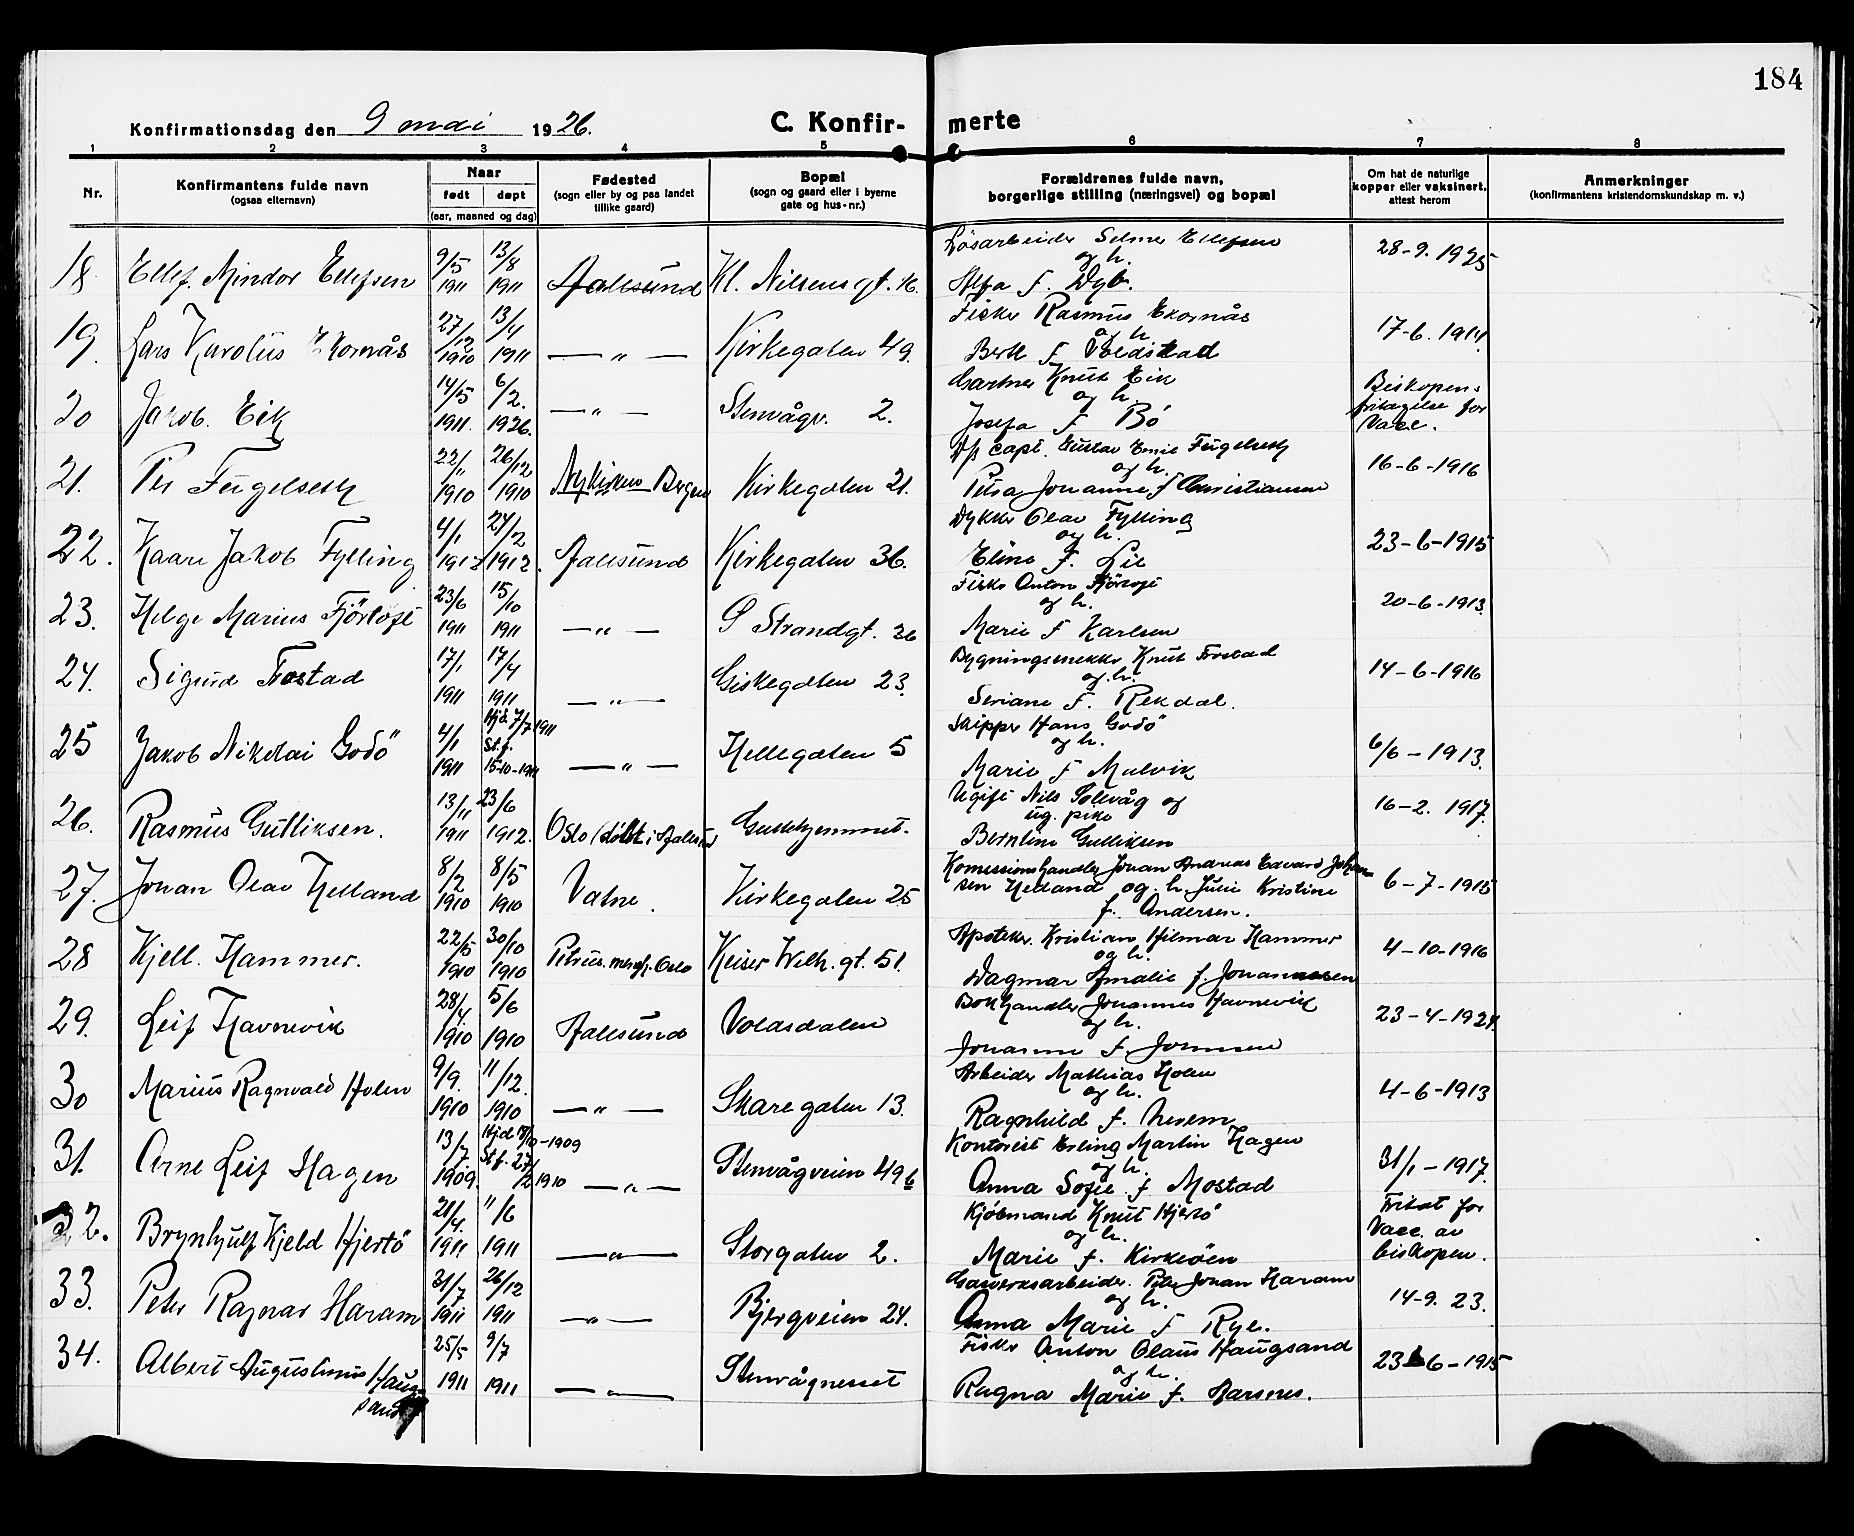 184
Konfirmationsdag den 9 mai 1926.
C. Konfirmerte
1 2 3 4 5 6 7 8
Nr.
Konfirmantens fulde navn
(ogsaa efternavn)
Naar
født døpt
(aar, maaned og dag)
Fødested
(sogn eller by og paa landet
tillike gaard)
Bopæl
(sogn og gaard eller i byerne
gate og hus-nr.)
Forældrenes fulde navn,
borgerlige stilling (næringsvei) og bopæl
Om hat de naturlige
kopper eller vaksinert.
attest herom
Anmerkninger
(konfirmantens kristendomskundskap m. v.)
18. Ellef. Mindor Ellefsen 9/5 1911 13/8 1911 Aalesund Kl. Nilsens gt. 16.
Løsarbeider Selmer Ellefsen
og h.
f. Dyb.
28-9. 1925
19. Lars Karolus Ekornås 27/12 1910 13/4 1911 — " — Kirkegaten 49.
Fisker Rasmus Ekornås
og h.
Berte f. Voldstad
17-6. 1911.
20 Jakob. Eik 14/5 1911. 6/2. 1926. — " — Stenvågv. 2.
Gartner Knut Eik
og h.
Josefa f. Bö
Biskopens
fritagelse for
Vacc.
21. Per Fugelseth 22/11 1910 26/12 1910 Nykirken Bergen Kirkegaten 21.
D/s capt. Gustav Emil Fugelseth
og h.
Petra Johanne f. Christiansen
16-6-1916
22. Kaare Jakob Fylling 4/1 1912 24/2 1912. Aalesund Kirkegaten 36.
Dykker Olav Fylling
og h.
Eline f. Lie
23-6-1915
23. Helge Marius Fjörtoft 23/6 1911 15/10 1911 — " — S Strandgt. 26
Fisker Anton Fjörtoft
og h.
Marie f. Karlsen
20-6-1913.
24. Sigurd Frostad 17/1 1911 17/4 1911 — " — Giskegaten 23.
Bygningssnekker Knut Frostad
og h.
Seriane f. Rekdal.
14-6-1916
25 Jakob Nikolai Godö 4/1 1911 Hjd. 7/7 1911 St. f. 15-10-1911 — " — Hellegaten 5
Skipper Hans Godö
og h.
Marie f. Mulvik
6/6-1913.
26. Rasmus Gulliksen. 13/11 1911 23/6 1912. Oslo (döbt i Aalesund) Guttehjemmet.
Ugift Nils Sollvåg og
ug. pike
Berntine Gulliksen
16-2. 1917.
27. Johan Olav Helland 8/2 1910 8/5 1910 Vatne. Kirkegaten 25
Komissionshandler Johan Andreas Edvard Johan-
sen Helland og h. Julie Kristine
f. Andersen.
6-7-1915
28 Kjell. Hammer. 22/5 1910 30/10 1910 Petrus. mengh. Oslo Keiser Wilh. gt. 51.
Apoteker Kristian Hilmar Hammer
og h.
Dagmar Amalie f. Johannessen
4-10-1916
29. Leif Havnevik 28/4 1910 5/6 1910 Aalesund Voldsdalen
Bokhandler Johannes Havnevik
og h.
Johanne f.
23-4-1924.
30 Marius Ragnvald Holen 9/9. 1910 11/12. 1910 — " — Skaregaten 13.
Arbeider Mathias Holen
og h.
Ragnhild f.
4-6-1913
31. Arne Leif Hagen 13/7 1909. Hjd -1909 St. f. 27/2 1910 — " — Stenvågveien 49b
Kontorist Erling Martin Hagen
og h.
Anna Sofie f. Mostad
31/1-1917.
32. Brynhulf Kjeld Hjertö 21/4. 1911 11/6 1911 — " — Storgaten 2.
Kjöbmand Knut Hjertö
og h.
Marie f. Kirkeöen
Fritat for
Vacc. av
biskopen.
33. Peter Ragnar Haram 31/7 1911 26/12 1911 — " — Bjergveien 24.
Gasverksarbeider. Peter Johan Haram
og h.
Anna Marie f. Rye.
14-9. 23.
34. Albert Augustinus Haug-
sand 25/5 1911 9/7 1911 — " — Stenvågnesset
Fisker Anton Olaus Haugsand
og h.
Ragna Marie f. Aarsnes.
23-6-1915